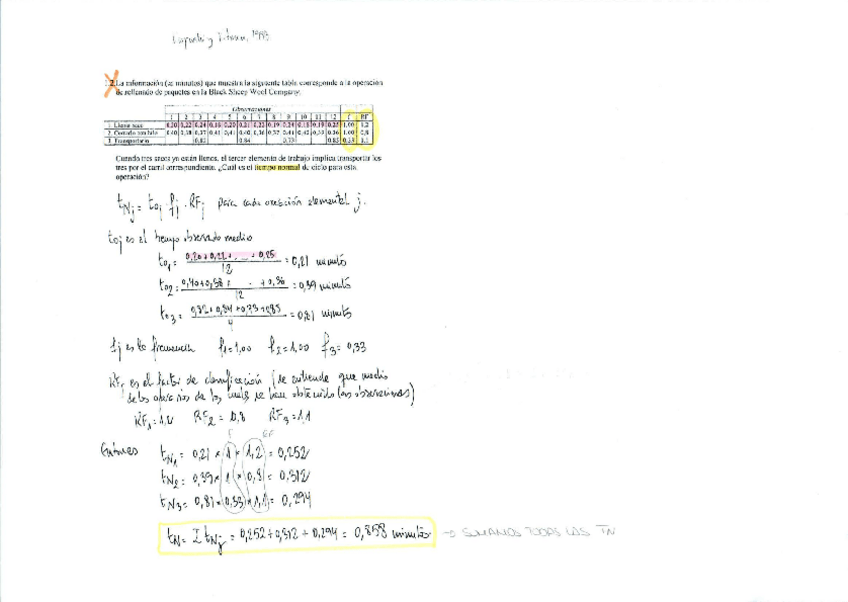 2. La información (en minutos) que muestra la siguiente tabla corresponde a la operación
de rellenado de paquetes en la Black Sheep Wool Company.
Observaciones
1 2 3 4 5 6 7 8 9 10 11 12 f RF
1. Llenar saco 0,20 0,22 0,24 0,18 0,20 0,21 0,22 0,19 0,24 0,18 0,19 0,25 1,00 1,2
2. Coserlo con hilo 0,40 0,38 0,37 0,41 0,41 0,40 0,36 0,37 0,41 0,42 0,36 1,00 0,8
3. Transportarlo 0,82 0,84 0,73 0,85 0,33 1,1
Cuando tres sacos ya están llenos, el tercer elemento de trabajo implica transportar los
tres por el carril correspondiente. ¿Cuál es el tiempo normal de ciclo para esta
operación?
tNj = toj · fj · RFj para cada operación elemental j.
toj es el tiempo observado medio
to1 = 0,20+0,22+ ... +0,25 / 12 = 0,21 minutos
to2 = 0,40+0,38+ ... +0,36 / 12 = 0,39 minutos
to3 = 0,82+0,84+0,73+0,85 / 4 = 0,81 minutos
fj es la frecuencia f1=1,00 f2=1,00 f3=0,33
RFj es el factor de clasificación (se entiende que medio
de los operarios de los cuales se han obtenido las observaciones)
RF1=1,2 RF2=0,8 RF3=1,1
f RF
Entonces tN1 = 0,21 × 1 × 1,2 = 0,252
tN2 = 0,39 × 1 × 0,8 = 0,312
tN3 = 0,81 × 0,33 × 1,1 = 0,294
tN = Σ tNj = 0,252+0,312+0,294 = 0,858 minutos → SUMAMOS TODAS LAS TN